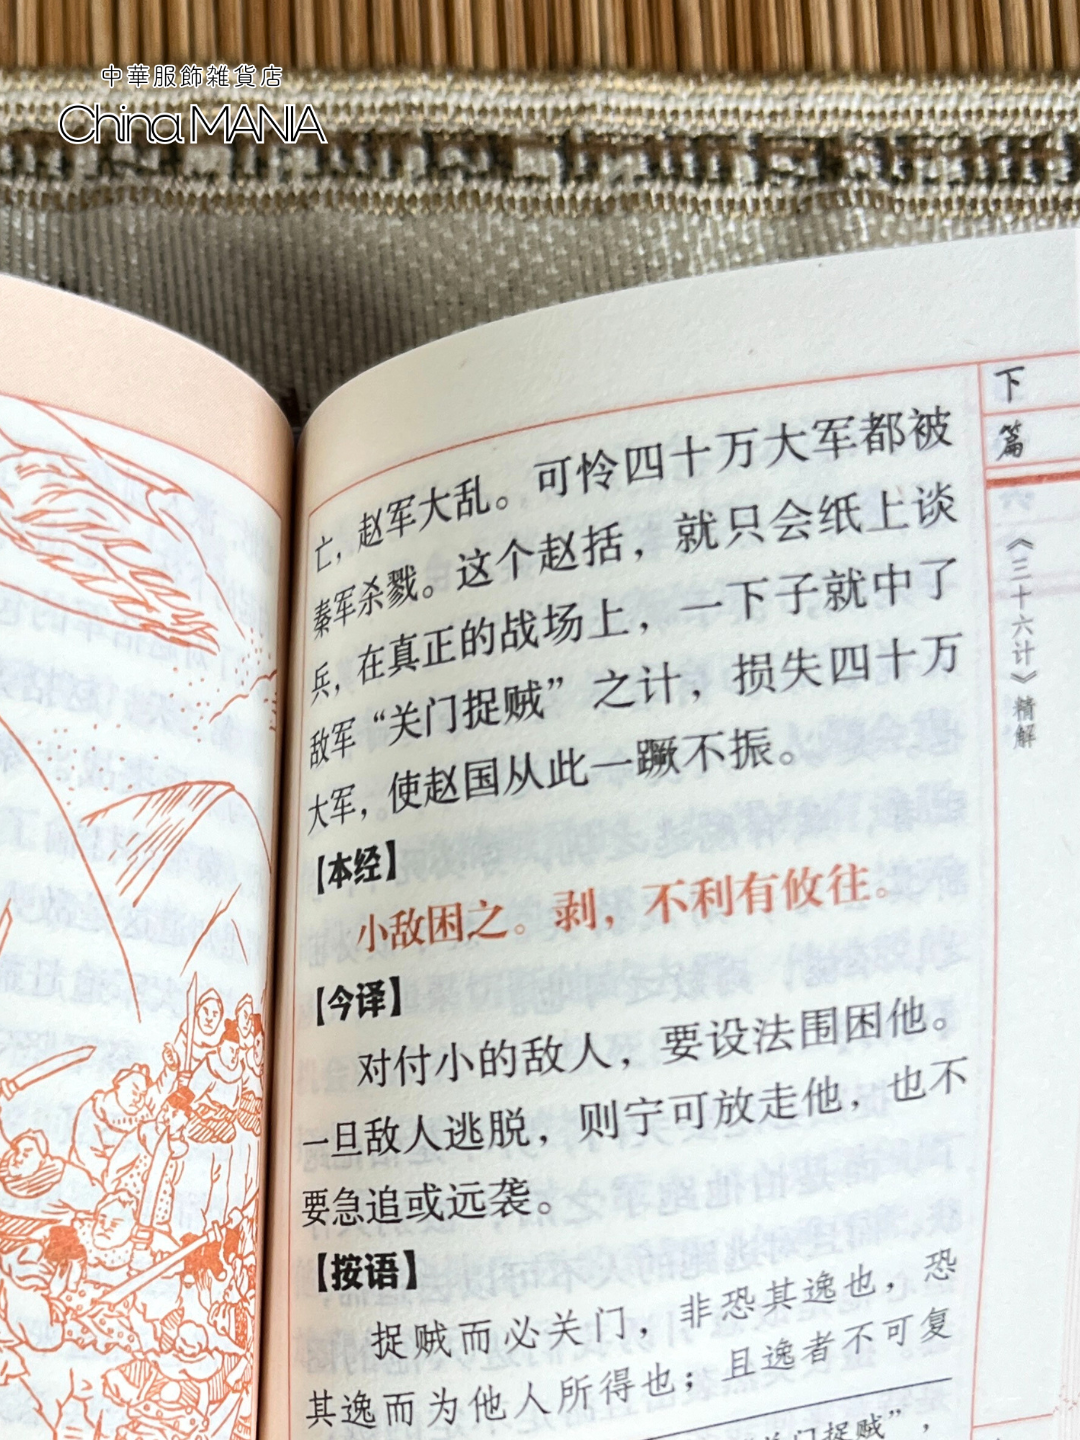 中華服飾雑貨店
China MANIA
下篇
《三十六计》精解
亡，赵军大乱。可怜四十万大军都被
秦军杀戮。这个赵括，就只会纸上谈
兵，在真正的战场上，一下子就中了
敌军“关门捉贼”之计，损失四十万
大军，使赵国从此一蹶不振。
【本经】
小敌困之。剥，不利有攸往。
【今译】
对付小的敌人，要设法围困他。
一旦敌人逃脱，则宁可放走他，也不
要急追或远袭。
【按语】
捉贼而必关门，非恐其逸也，恐
其逸而为他人所得也；且逸者不可复
关门捉贼”，